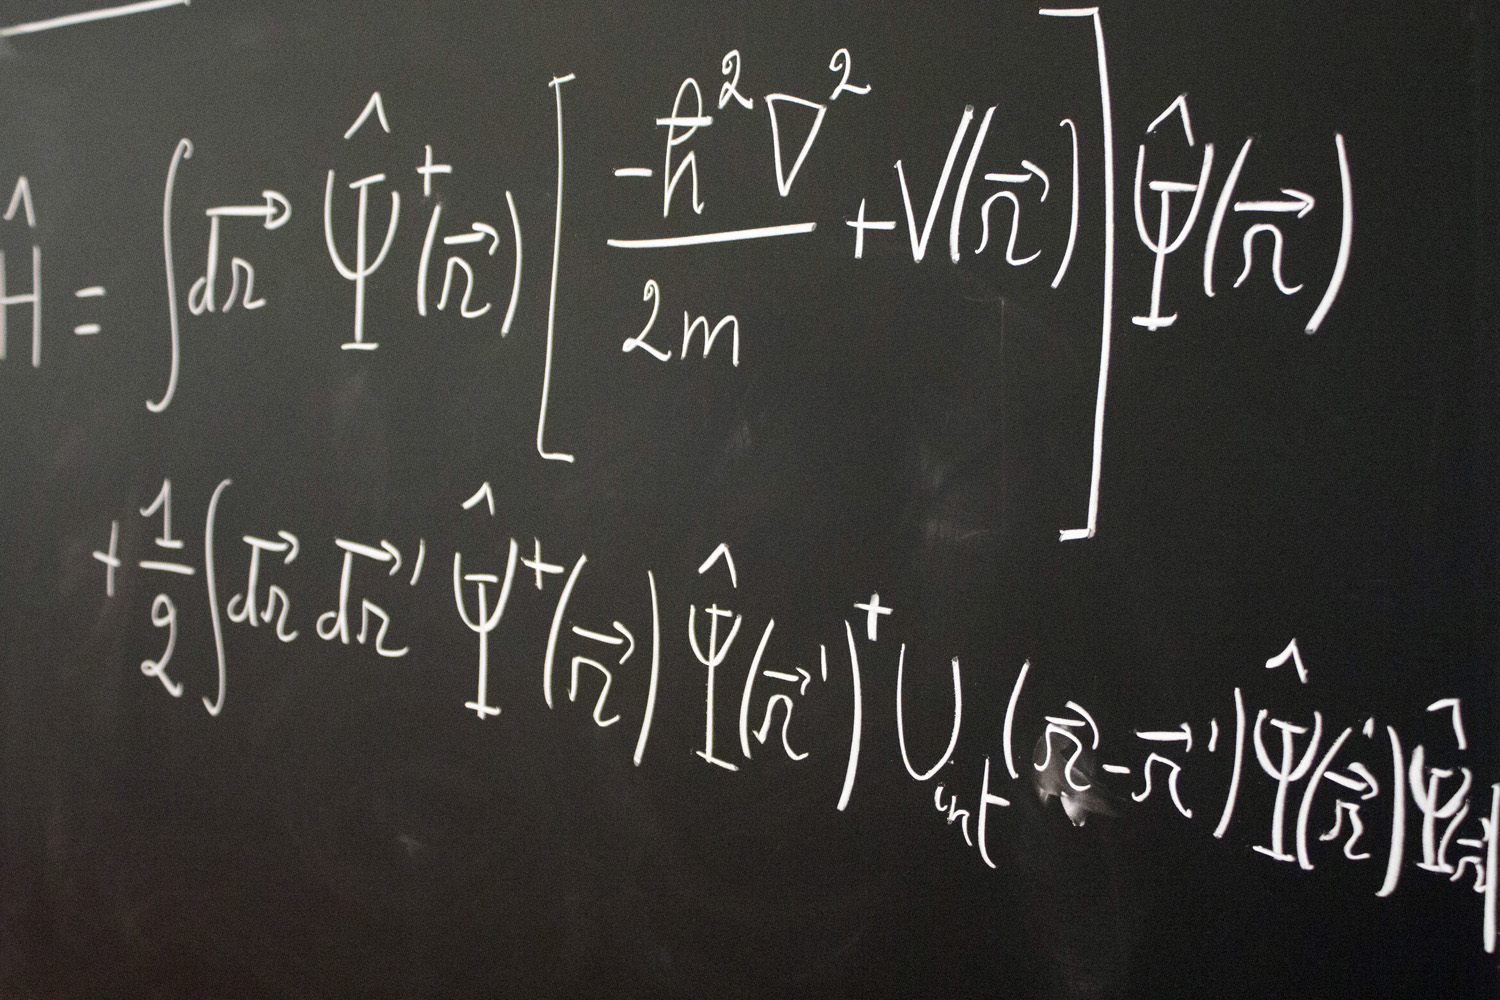 Ĥ = ∫ d𝑟⃗ Ψ̂⁺(𝑟⃗) [ -ħ²∇²/2m + V(𝑟⃗) ] Ψ̂(𝑟⃗)
+ 1/2 ∫ d𝑟⃗ d𝑟⃗' Ψ̂⁺(𝑟⃗) Ψ̂(𝑟⃗')⁺ U_int(𝑟⃗ - 𝑟⃗') Ψ̂(𝑟⃗') Ψ̂(𝑟⃗)